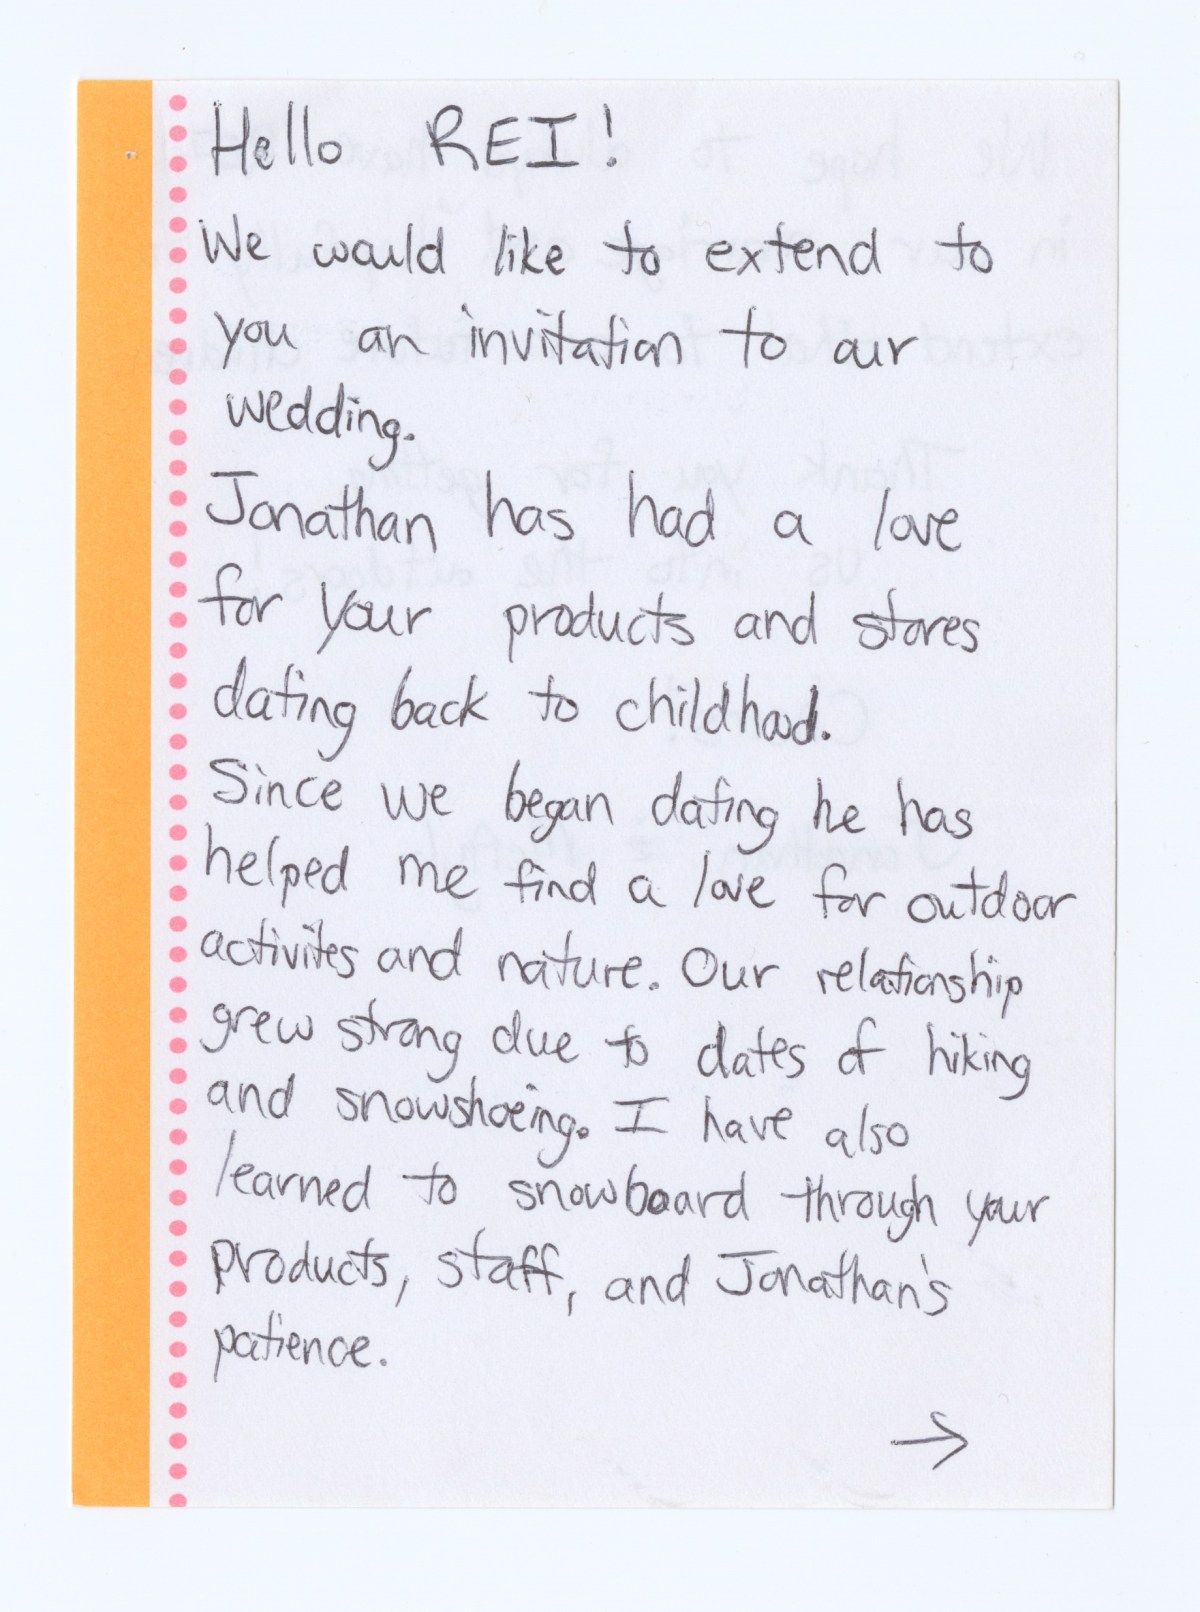 Hello REI!
We would like to extend to
you an invitation to our
wedding.
Jonathan has had a love
for your products and stores
dating back to childhood.
Since we began dating he has
helped me find a love for outdoor
activites and nature. Our relationship
grew strong due to dates of hiking
and snowshoeing. I have also
learned to snowboard through your
products, staff, and Jonathan's
patience.
→